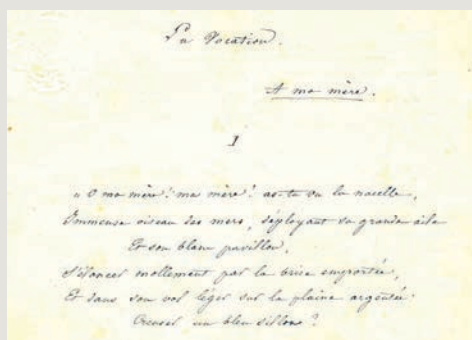 La Vocation.
A ma mère.
1
« O ma mère ! ma mère ! as-tu vu la nacelle,
Immense oiseau des mers, déployant sa grande aile
Et son blanc pavillon,
S'élancer mollement par la brise emportée,
Et dans son vol léger sur la plaine argentée
Creuser un bleu sillon ?